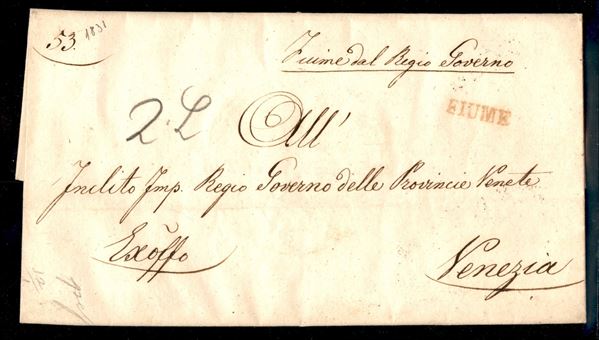 53. 1831
Fiume dal Regio Governo
FIUME
2 L
All'
Inclito Imp. Regio Governo delle Provincie Venete
Exõffo
Venezia